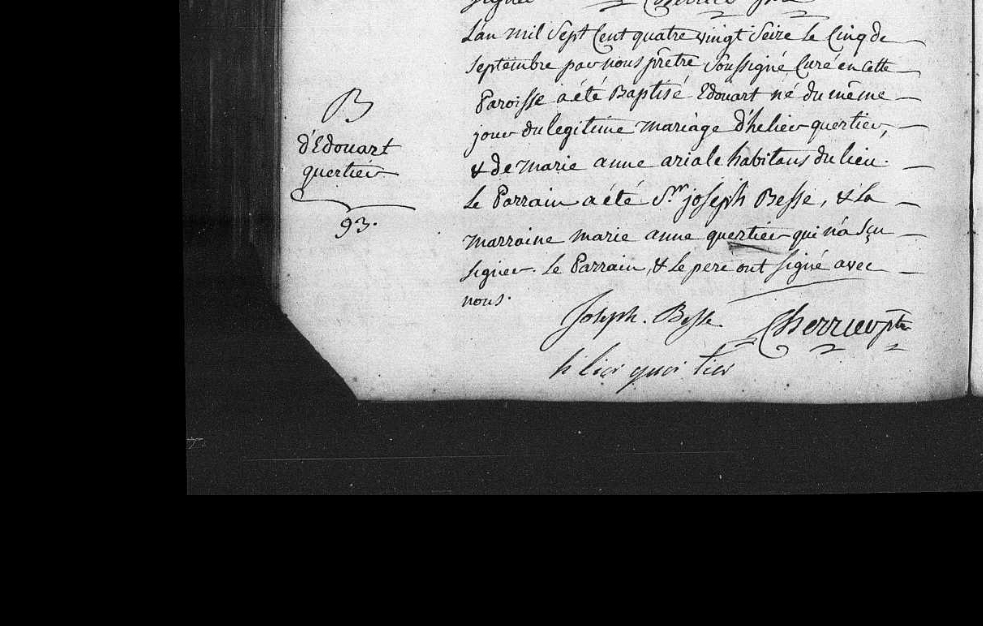 B
d'Edouart
quertier
93.
Lan mil Sept Cent quatre vingt Seize le Cinq de
Septembre par nous prêtre Soussigné Curé en cette
Paroisse a été Baptisé Edouart né du même
jour du legitime mariage d'helier quertier,
& de marie anne ariale habitans du lieu.
Le Parrain a été Sr. joseph Besse, & la
marraine marie anne quertier qui n'a sçu
signer. Le Parrain, & le pere ont signé avec
nous.
Joseph. Besse Cherrier ptre
h lier quer tier